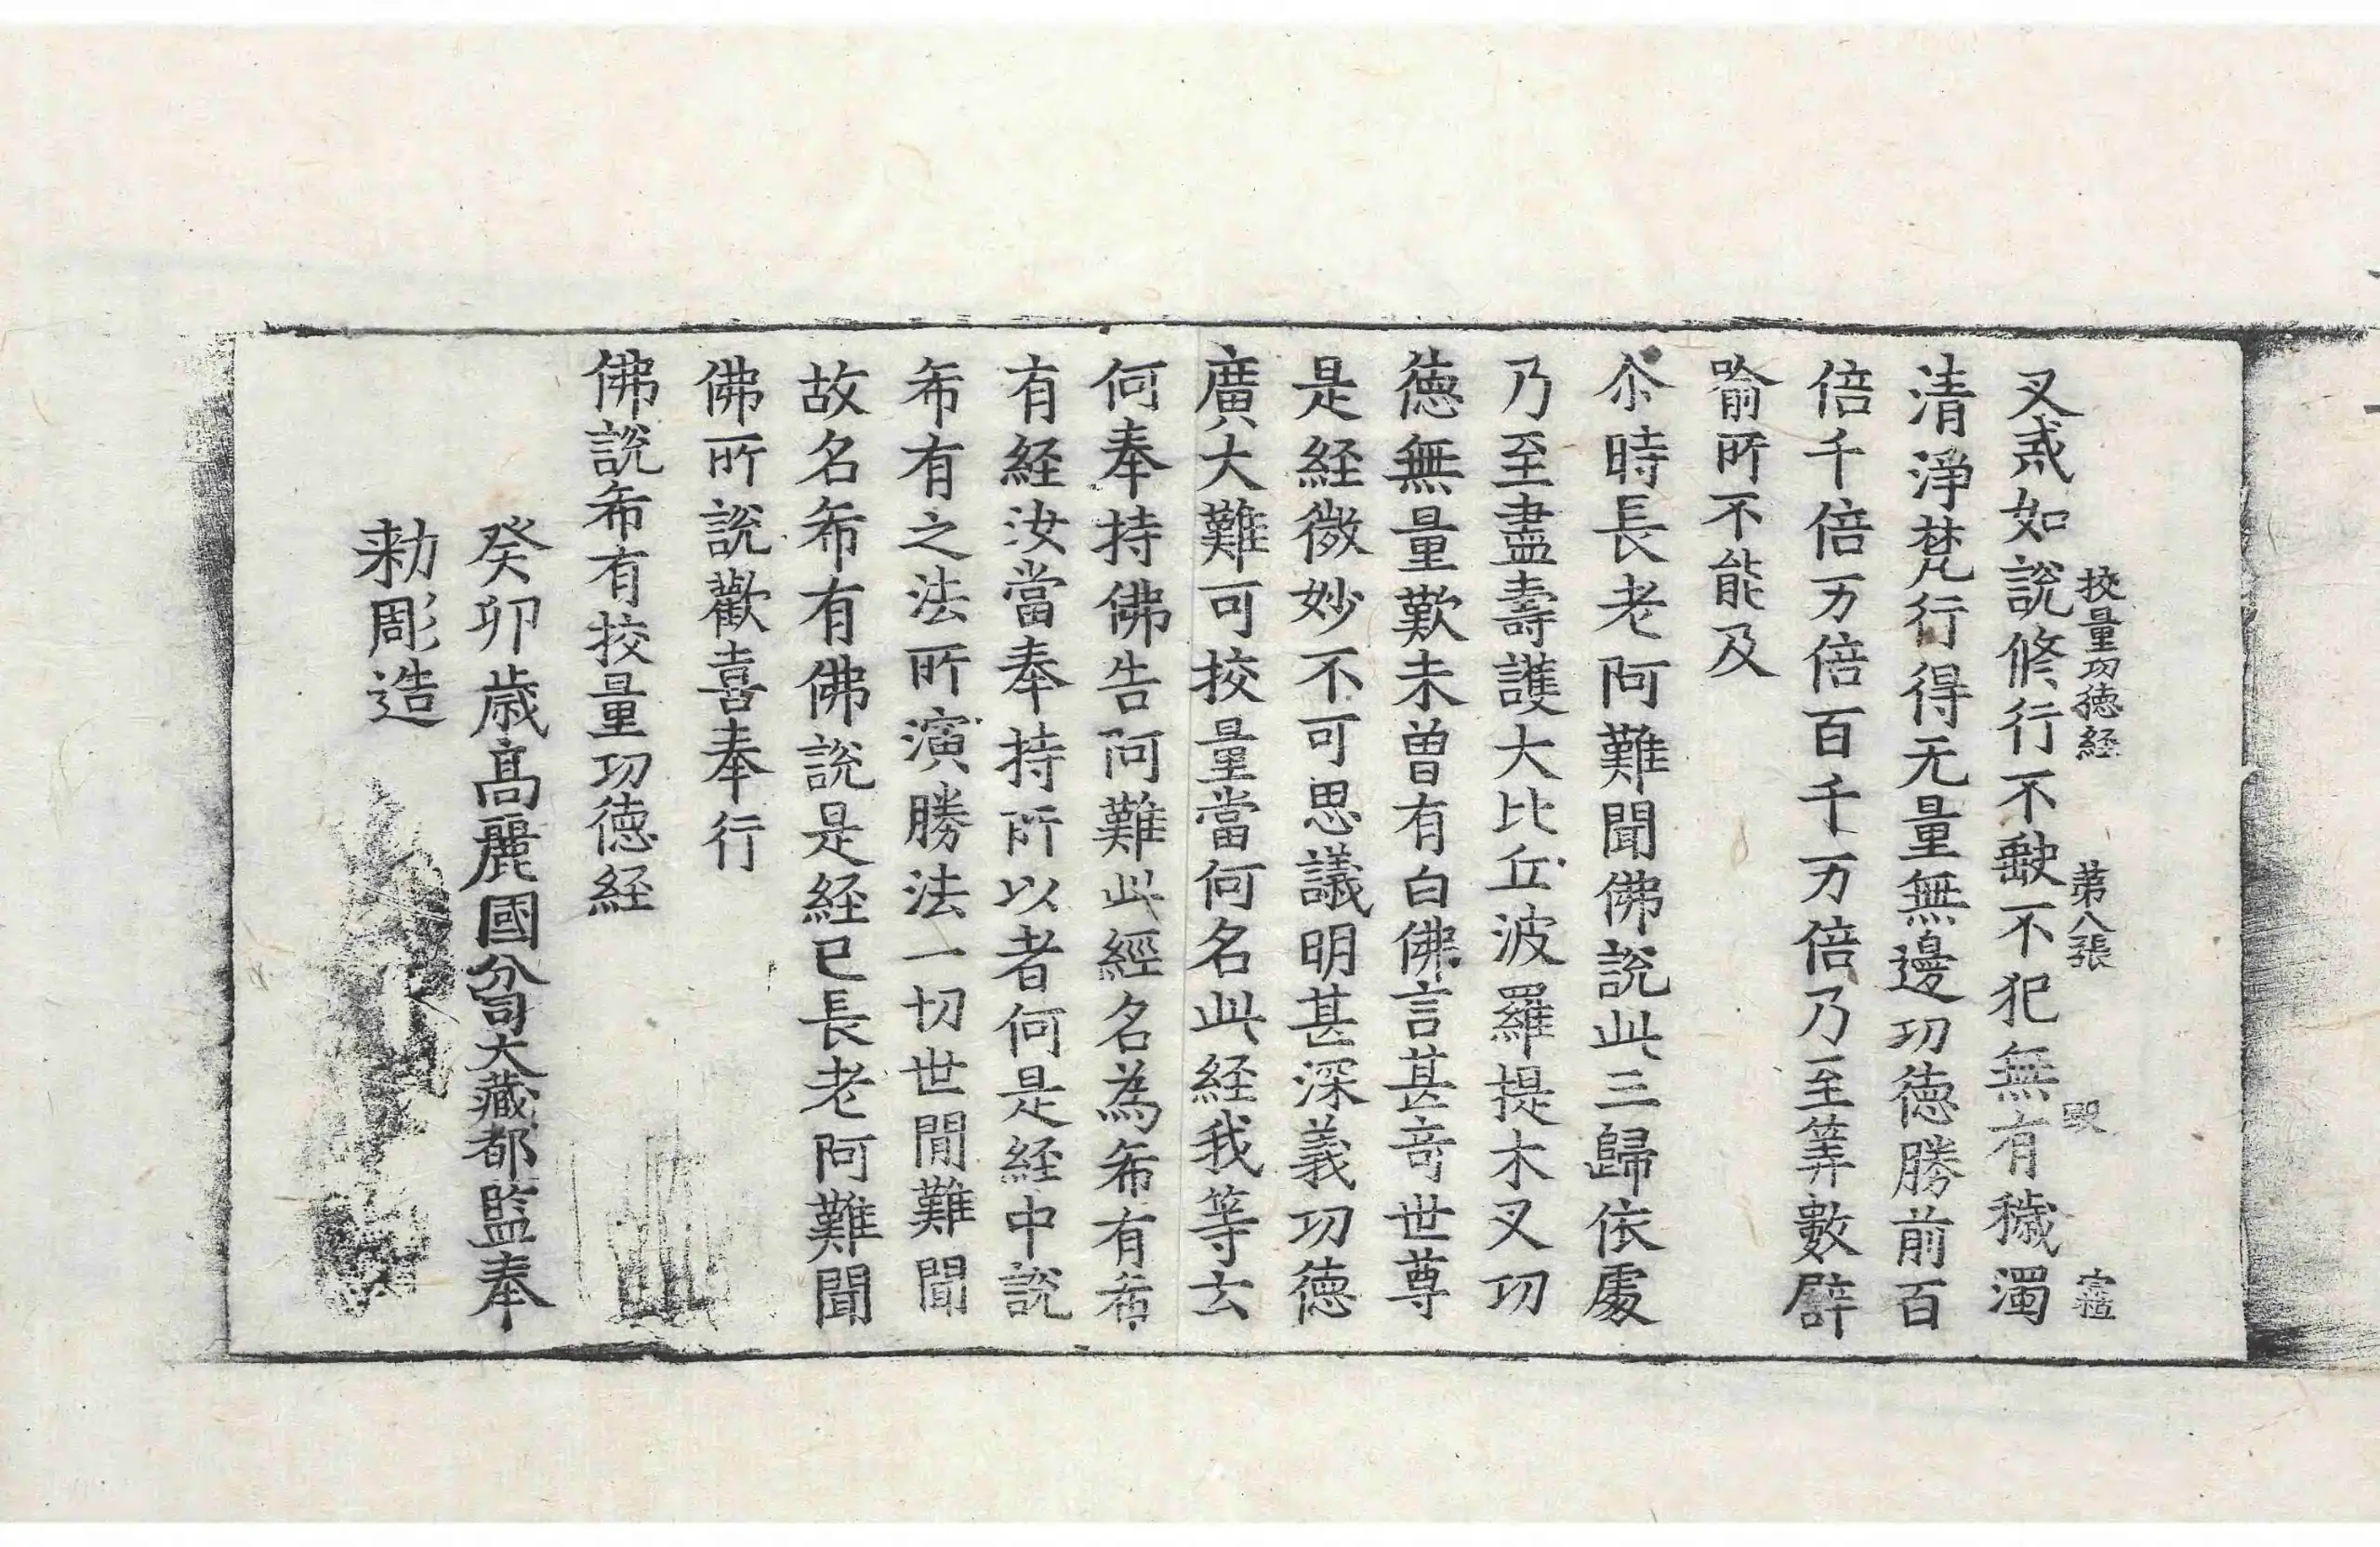 挍量功德経 第八張 㘝 宣椬
叉戒如說修行不𡙇不犯無有穢濁
清淨梵行得无量無邊功德勝前百
倍千倍万倍百千万倍乃至筭數譬
喻所不能及
尒時長老阿難聞佛說此三歸依處
乃至盡壽護大比丘波羅提木叉功
德無量歎未曽有白佛言甚竒世尊
是経微妙不可思議明甚深義功德
廣大難可挍量當何名此経我等云
何奉持佛告阿難此經名為希有希
有経汝當奉持所以者何是経中說
希有之法所演勝法一切世間難聞
故名希有佛說是経已長老阿難聞
佛所說歡喜奉行
佛說希有挍量功德経
癸卯歳髙麗國分司大藏都監奉
勑彫造